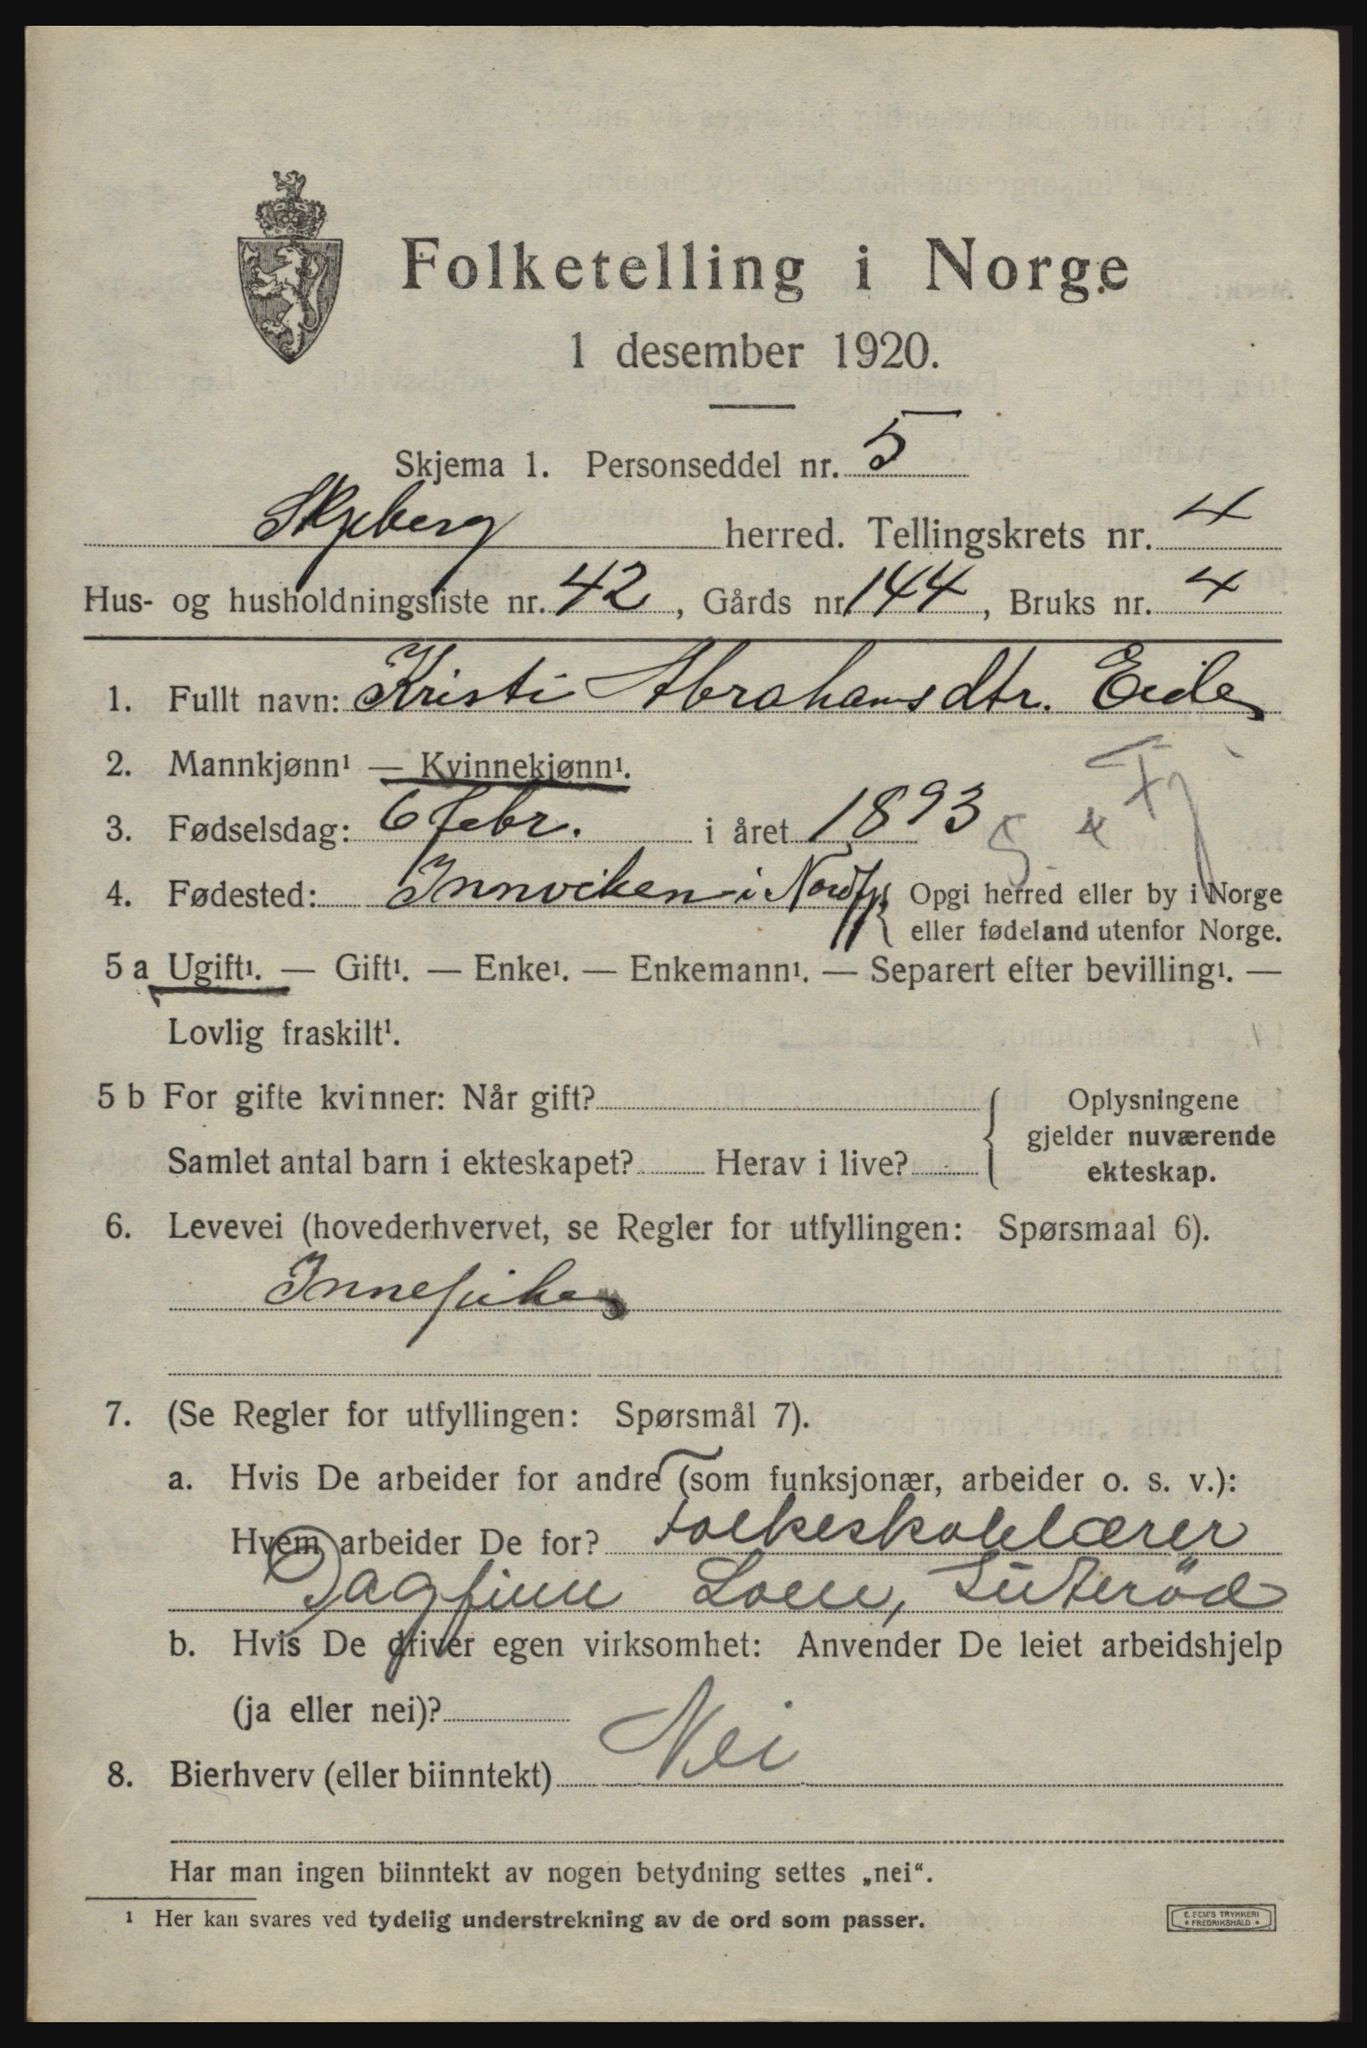 Folketelling i Norge
1 desember 1920.
Skjema 1. Personseddel nr. 5
Skjeberg herred. Tellingskrets nr. 4
Hus- og husholdningsliste nr. 42, Gårds nr. 144, Bruks nr. 4
1. Fullt navn: Kristi Abrahamsdtr. Eide
2. Mannkjønn¹ — Kvinnekjønn¹.
3. Fødselsdag: 6 febr. i året 1893
4. Fødested: Innviken i Nordfj. { Opgi herred eller by i Norge
eller fødeland utenfor Norge.
5 a Ugift¹. — Gift¹. — Enke¹. — Enkemann¹. — Separert efter bevilling¹. —
Lovlig fraskilt¹.
5 b For gifte kvinner: Når gift?
Samlet antal barn i ekteskapet? Herav i live?
{ Oplysningene
gjelder nuværende
ekteskap.
6. Levevei (hovederhvervet, se Regler for utfyllingen: Spørsmaal 6).
Innepike
7. (Se Regler for utfyllingen: Spørsmål 7).
a. Hvis De arbeider for andre (som funksjonær, arbeider o. s. v.):
Hvem arbeider De for? Folkeskolelærer
Dagfinn Loen, Suterød
b. Hvis De driver egen virksomhet: Anvender De leiet arbeidshjelp
(ja eller nei)?
8. Bierhverv (eller biinntekt) Nei
Har man ingen biinntekt av nogen betydning settes „nei“.
¹ Her kan svares ved tydelig understrekning av de ord som passer.
E. SEM'S TRYKKERI
* FREDRIKSHALD *